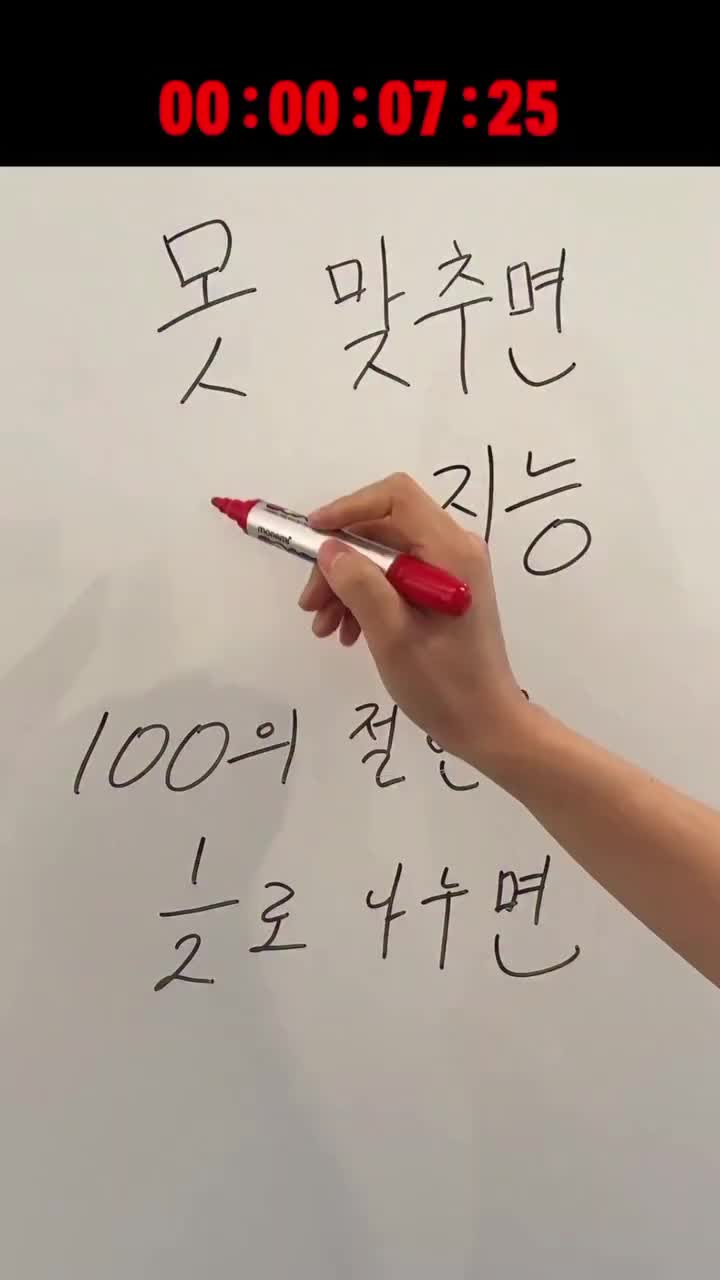 00:00:07:25
못 맞추면
지능
monami
100의 절반
1/2로 나누면